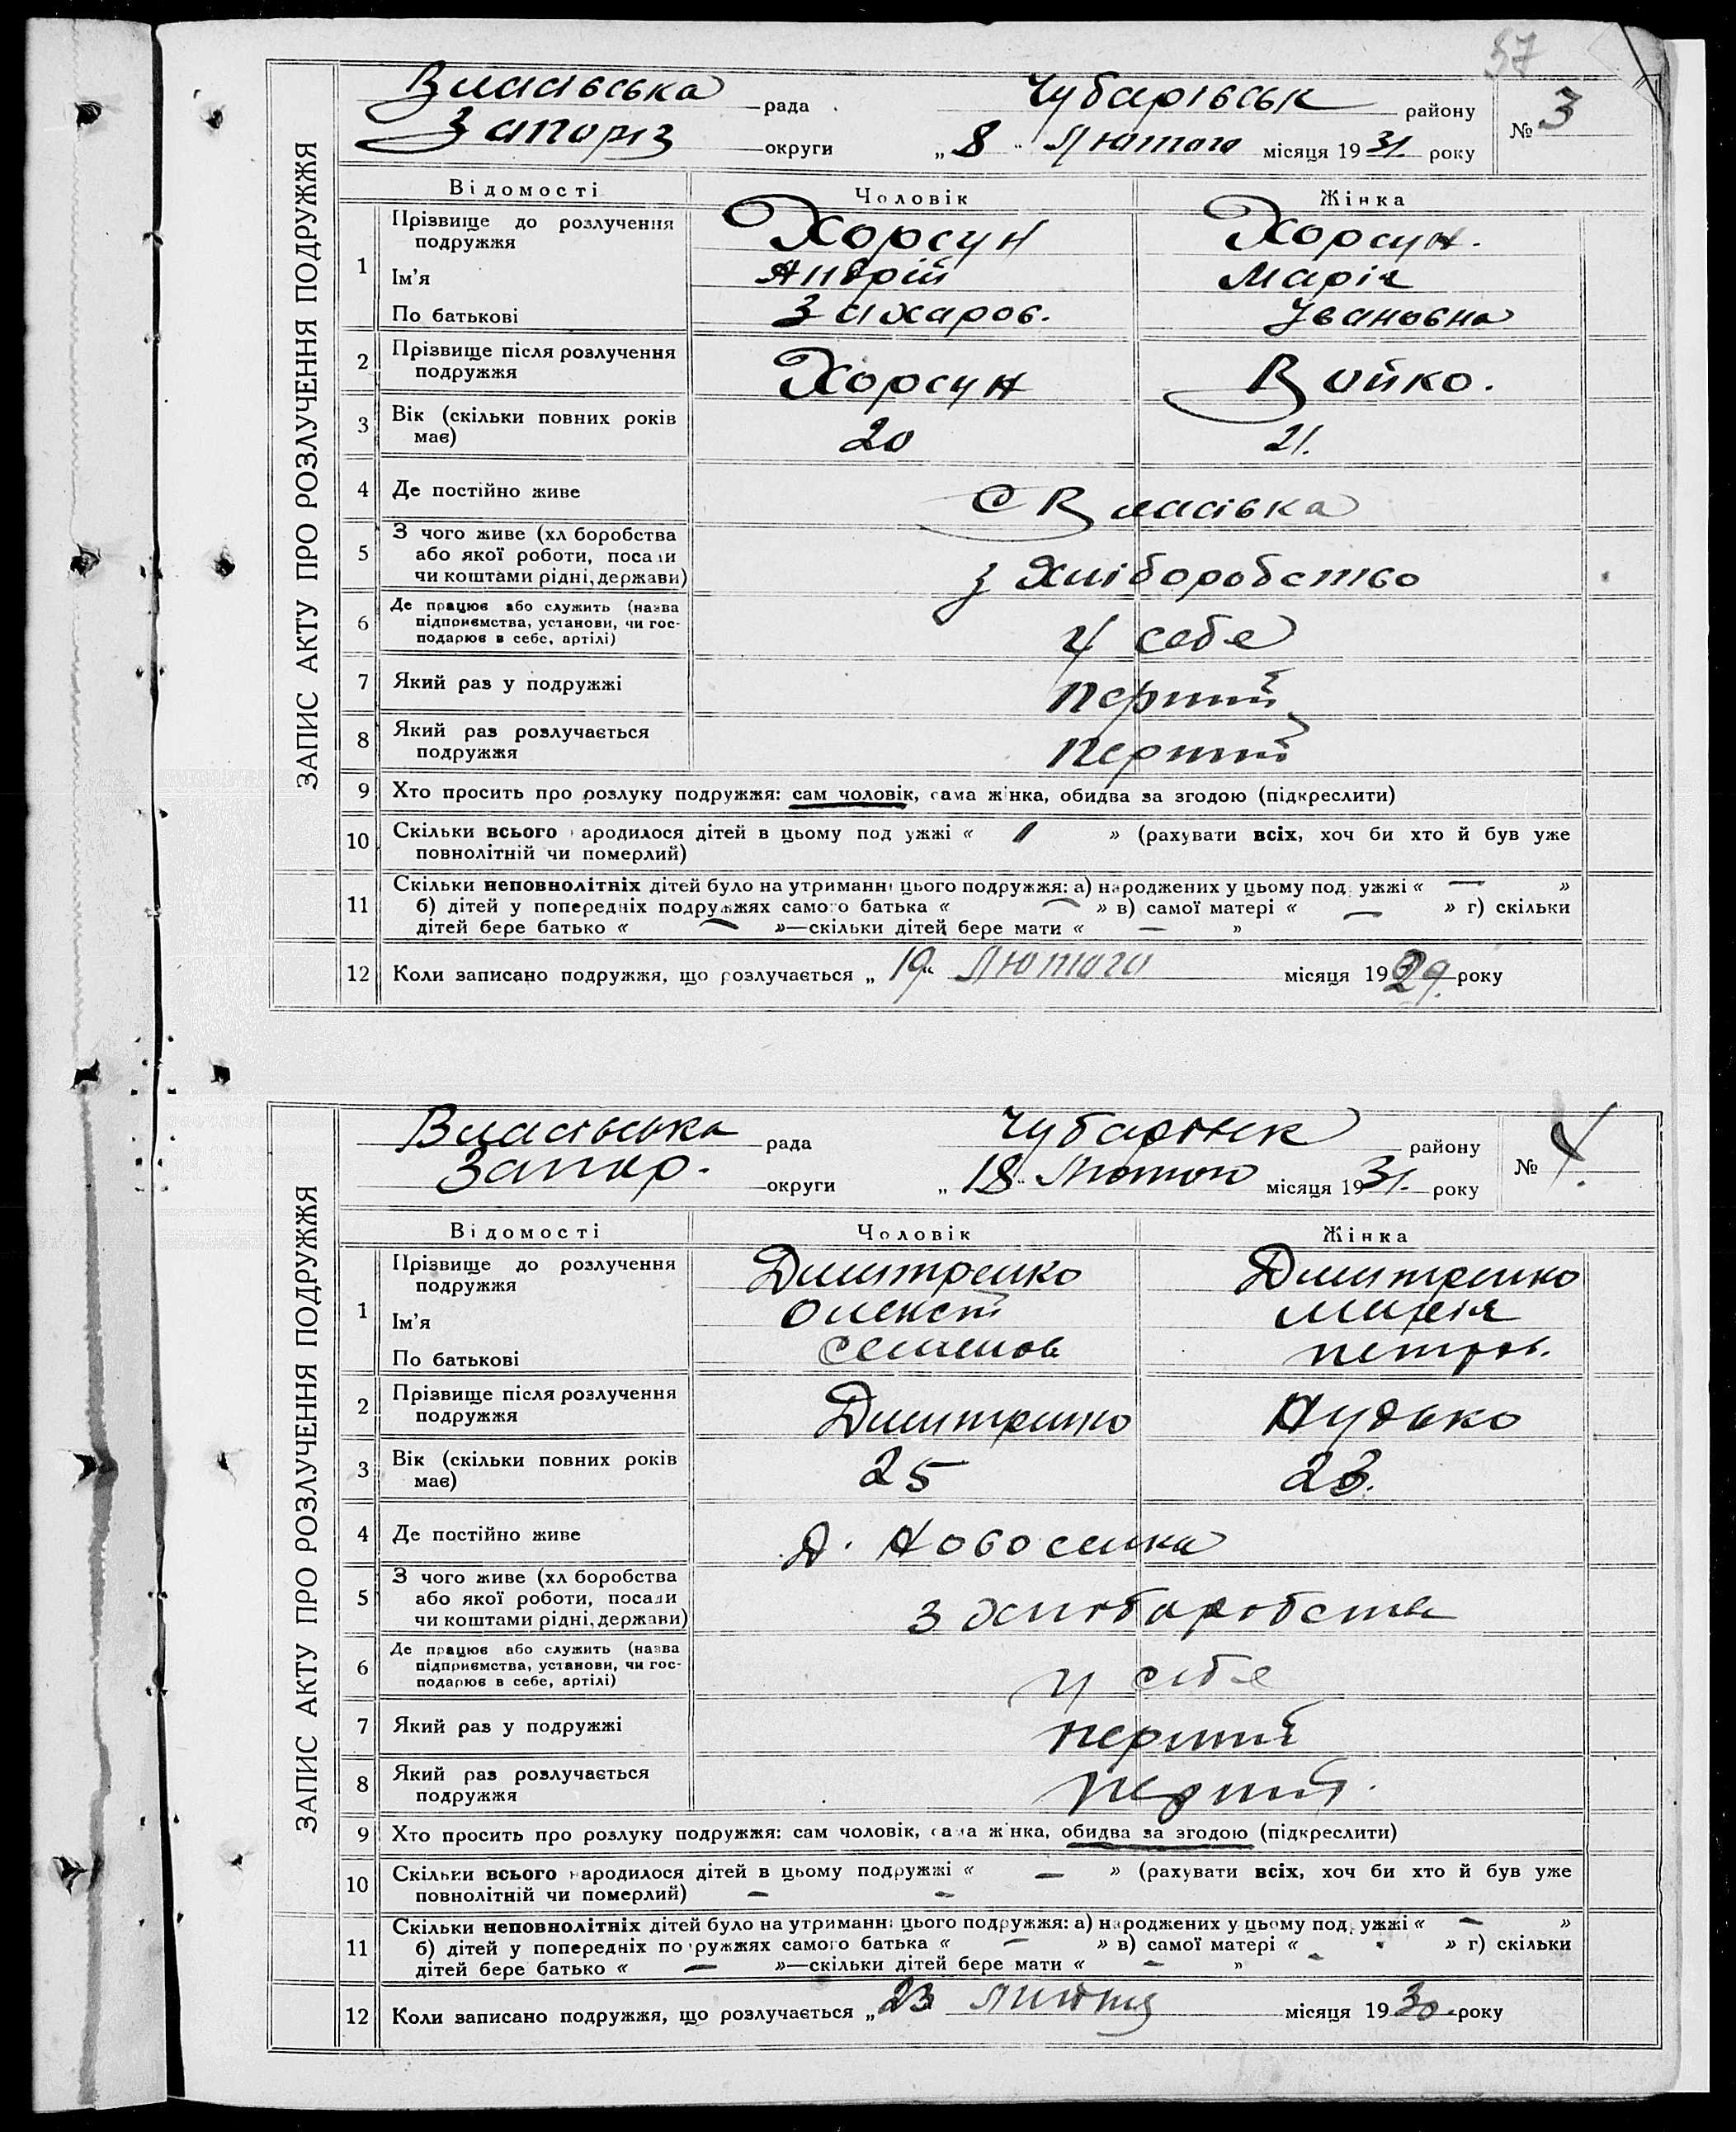 37
ЗАПИС АКТУ ПРО РОЗЛУЧЕННЯ ПОДРУЖЖЯ
Власівська рада Чубарівськ району № 3
Запоріз округи „ 8 " Лютого місяця 19 31. року
Відомості Чоловік Жінка
1 Прізвище до розлучення подружжя Хорсун Хорсун.
Ім'я Андрій Марія
По батькові Захаров. Івановна
2 Прізвище після розлучення подружжя Хорсун Бойко.
3 Вік (скільки повних років має) 20 21.
4 Де постійно живе С Власівка
5 З чого живе (хліборобства
або якої роботи, посади
чи коштами рідні, держави) з Хліборобство
6 Де працює або служить (назва
підприємства, установи, чи гос-
подарює в себе, артілі) У себе
7 Який раз у подружжі перший
8 Який раз розлучається подружжя перший
9 Хто просить про розлуку подружжя: сам чоловік, сама жінка, обидва за згодою (підкреслити)
10 Скільки всього народилося дітей в цьому подружжі « 1 » (рахувати всіх, хоч би хто й був уже
повнолітній чи померлий)
11 Скільки неповнолітніх дітей було на утриманні цього подружжя: а) народжених у цьому подружжі « — »
б) дітей у попередніх подружжях самого батька « — » в) самої матері « — » г) скільки
дітей бере батько « — »—скільки дітей бере мати « — »
12 Коли записано подружжя, що розлучається „ 19 " Лютого місяця 19 29. року
ЗАПИС АКТУ ПРО РОЗЛУЧЕННЯ ПОДРУЖЖЯ
Власівська рада Чубарівськ району № 4.
Запор. округи „ 18 " Лютого місяця 19 31. року
Відомості Чоловік Жінка
1 Прізвище до розлучення подружжя Дмитренко Дмитренко
Ім'я Олексій Марія
По батькові Семенов Петров.
2 Прізвище після розлучення подружжя Дмитренко Нудько
3 Вік (скільки повних років має) 25 23.
4 Де постійно живе Новоселка
5 З чого живе (хліборобства
або якої роботи, посади
чи коштами рідні, держави) з хліборобства
6 Де працює або служить (назва
підприємства, установи, чи гос-
подарює в себе, артілі) у себе
7 Який раз у подружжі перший
8 Який раз розлучається подружжя перший.
9 Хто просить про розлуку подружжя: сам чоловік, сама жінка, обидва за згодою (підкреслити)
10 Скільки всього народилося дітей в цьому подружжі « — » (рахувати всіх, хоч би хто й був уже
повнолітній чи померлий) — —
11 Скільки неповнолітніх дітей було на утриманні цього подружжя: а) народжених у цьому подружжі « — »
б) дітей у попередніх подружжях самого батька « — » в) самої матері « — » г) скільки
дітей бере батько « — »—скільки дітей бере мати « — »
12 Коли записано подружжя, що розлучається „ 23 місяця 19 30. року